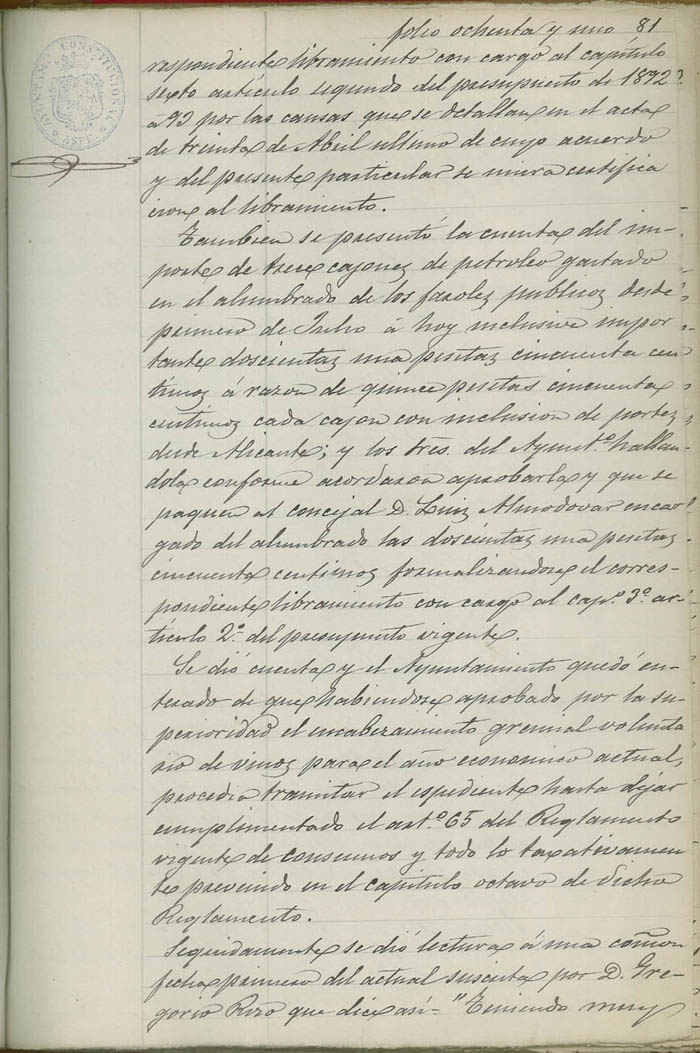 folio ochenta y uno 81
AYUNTAMTO CONSTITUCIONAL
ASPE
respondiente libramiento con cargo al capítulo
sexto artículo segundo del presupuesto de 1892
á 93 por las causas que se detallan en el acta
de treinta de Abril ultimo de cuyo acuerdo
y del presente particular se unira certifica
cion al libramiento.
Tambien se presentó la cuenta del im-
porte de trece cajones de petroleo gastado
en el alumbrado de los faroles publicos desde
primero de Julio á hoy inclusive impor
tante doscientas una pesetas cincuenta cen
timos á razon de quince pesetas cincuenta
centimos cada cajon con inclusion de portes
desde Alicante; y los tres. del Ayuntº. hallan-
dola conforme acordaron aprobarla y que se
paguen al concejal D. Luis Almodovar encar
gado del alumbrado las doscientas una pesetas
cincuenta centimos formalizandose el corres-
pondiente libramiento con cargo al capº. 3º. ar-
tículo 2º. del presupuesto vigente.
Se dió cuenta y el Ayuntamiento quedó en-
terado de que habiendose aprobado por la su-
perioridad el encabezamiento gremial volunta
rio de vinos para el año economico actual,
procedia tramitar el espediente hasta dejar
cumplimentado el artº. 65 del Reglamento
vigente de consumos y todo lo taxativamen
te prevenido en el capítulo octavo de dicho
Reglamento.
Seguidamente se dió lectura á una comon
fecha primero del actual suscrita por D. Gre-
gorio Rizo que dice asi= "Teniendo muy